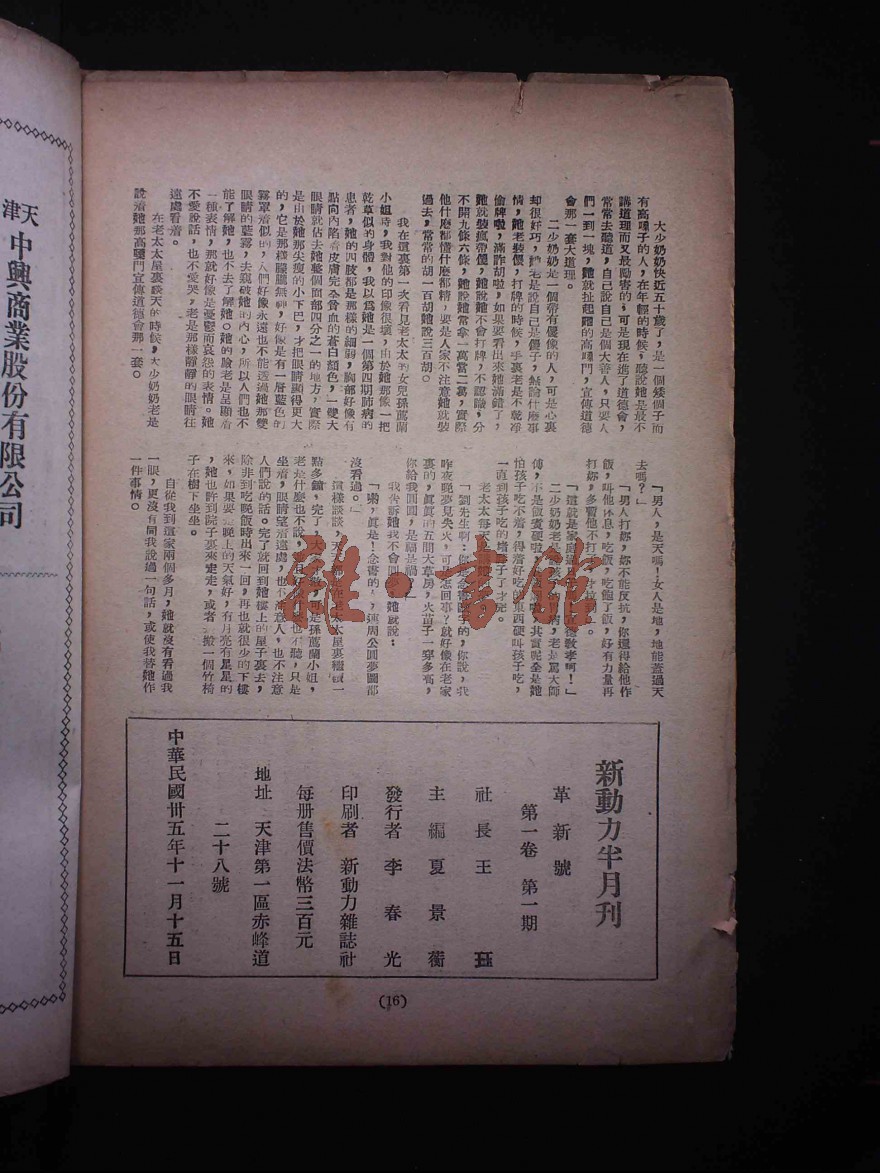 大少奶奶快近五十歲了，是一個矮個子而
有高嗓子的人，在年輕的時候，聽說她是最不
講道理而又最勵害的，可是現在進了道德會，
常常去聽道，自己說自己是個大善人，只要人
們一到一塊，她就扯起她的高嗓門，宣傳道德
會那一套大道理。
二少奶奶是一個帶有傻像的人，可是心裏
却很好巧，她老是說自己是傻子，無論什麽事
情，她老裝傻，打牌的時候，手裏老是不乾凈
偷牌啦，滿詐胡啦，如果要看出來她滿錯了，
她就裝瘋帶傻，她說她不會打牌，不認識，分
不開九條六條，她說她常拿一萬當二萬，實際
他什麽都懂什麽都精，要是人家不注意她就裝
過去，常常的胡一百胡她說三百胡。
我在這裏第一次看見老太太的女兒孫萬蘭
小姐時，我對他的印像很壞，由於她那像一把
乾草似的身體，我以爲她是一個第四期肺病的
患者，她的四肢都是那樣的細弱，胸部好像有
點向內陷着皮膚完全貧血的蒼白顏色，一雙大
眼睛就佔去她整個面部四分之一的地方，實際
是由於她那尖瘦的小下巴，才把眼睛顯得更大
的，它是那樣朦朧無神，好像是有一層藍色的
霧罩着似的，人們好像永遠也不能透過她那雙
眼睛的藍霧，去窺破她的內心，所以人們也不
能了解她，也不去了解她。她的臉老是呈顯着
一種表情，那就好像是憂鬱而哀怨的表情。她
不愛說話，也不愛哭，老是那樣靜靜的眼睛往
遠處看着。
在老太太屋裏談天的時候，大少奶奶老是
說着她那高嗓門宣傳道德會那一套。
「男人，是天嗎！女人是地，地能蓋過天
去嗎？」
「男人打妳，妳不能反抗，你還得給他作
飯，叫他休息，吃飯，吃飽了飯，好有力量再
打妳，多
「這就是家庭
二少奶奶老是
傅，不是飯煮硬啦
怕孩子吃不着，得着好吃的東西硬叫孩子吃，
一直到孩子吃的
老太太每天
「劉先生啊！你是念書識字的，你說，我
昨夜晚夢見失火，可是怎回事？就好像在老家
裏的，眞眞的五間大草房，火苗子一穿多高，
你給我圓圓，是福是禍
我告訴她我不會圓夢，她就說：
「嗬，眞是！念書的人，連周公圓夢圖都
沒看過。」
這樣談談，天天都在老太太屋裏
點多鐘，完了，大 可是孫萬蘭小姐，
老是什麽也不說， 也不聽，只是
坐着，眼睛望着遠處，也不注意人，也不注意
人們說的話。完了就回到她樓上的屋子裏去，
除非到吃晚飯時出來一回，再也就很少的下樓
來，如果要 晚上的天氣好，有月亮有星星的
，她也許到院子裏來走走，或者 一個竹椅
子在樹下坐坐。
自從我到這家兩個多月，她就沒有看過我
一眼，更沒有同我說過一句話，或使我替她作
一件事情。
新動力半月刊
革新號
第一卷 第一期
社長 王 珏
主編 夏景蘅
發行者 李春光
印刷者 新動力雜誌社
每册售價法幣三百元
地址 天津第一區赤峰道
二十八號
中華民國卅五年十一月十五日
(16)
天津中興商業股份有限公司
雜·書館